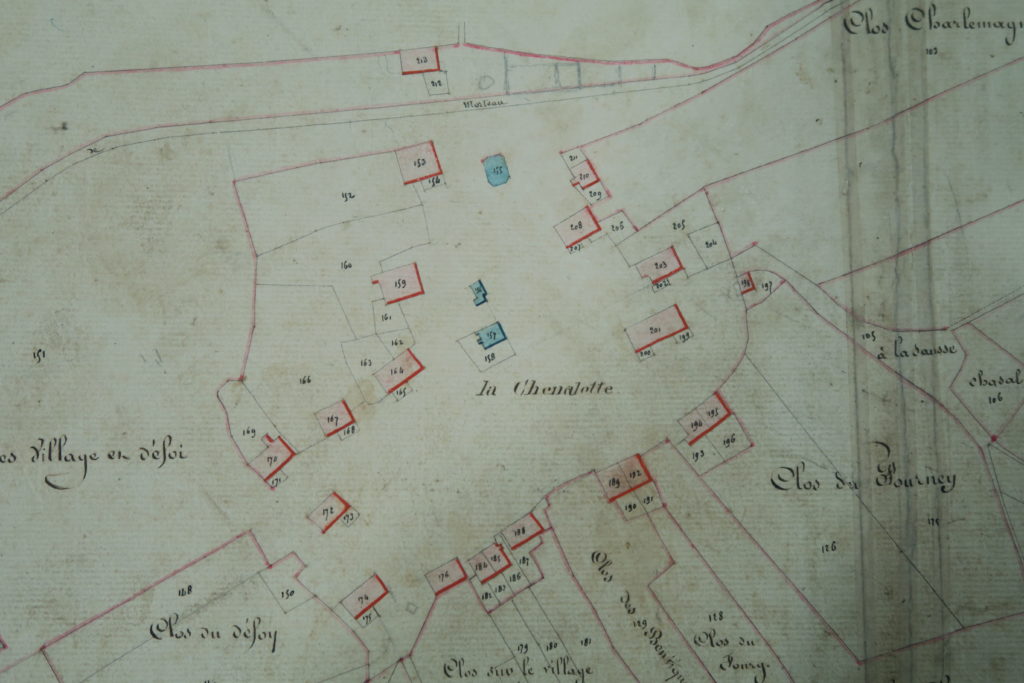 Clos Charlemagn
103
213
212
Morteau
de
153
154
155
211
210
209
152
208
206
205
207
204
160
203
202
159
198
197
161
157
201
199
200
158
162
163
151
164
105
à la sausse
166
165
la Chenalotte
chasal
106
167
168
169
195
194
196
193
es Village en désoi
170
171
192
189
191
190
Clos du Fourney
172
173
188
126
176
184
185
187
186
174
175
150
Clos du désoy
128
129
Clos des
Clos du
Fourg.
179
180
181
Clos sur le village